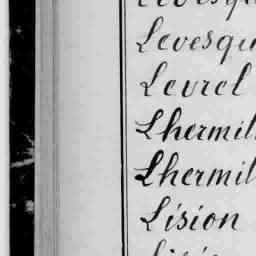 Levesqu
Levrel
Lhermit
Lhermit
Lision